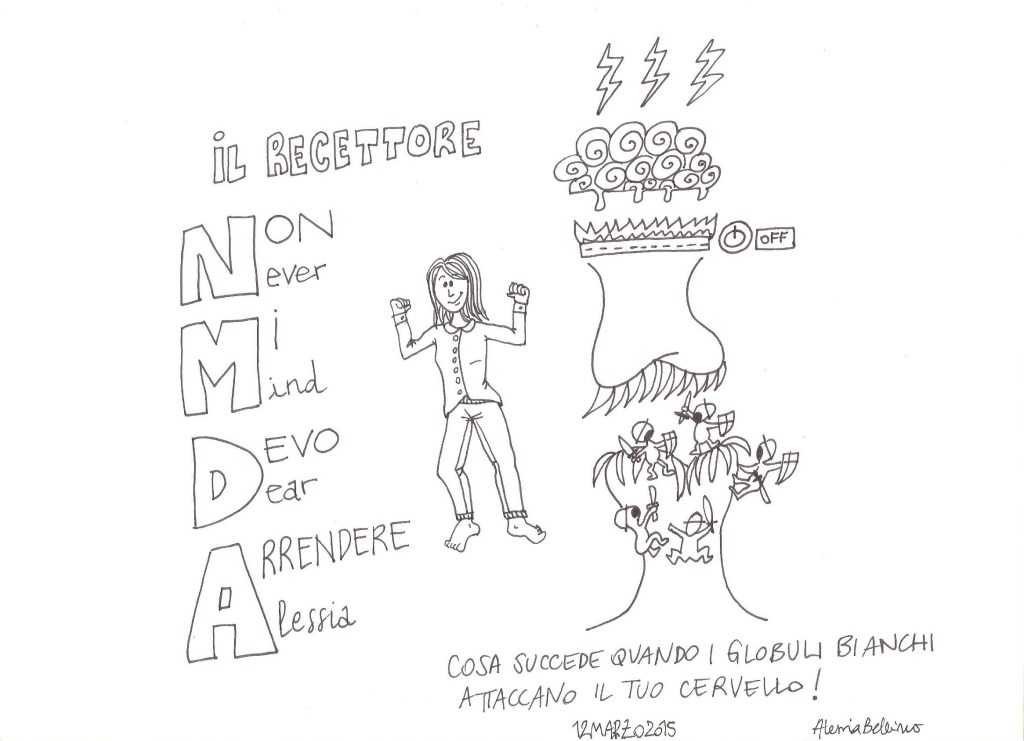 IL RECETTORE
NON
Never
Mi
Mind
DEVO
Dear
ARRENDERE
Alessia
OFF
COSA SUCCEDE QUANDO I GLOBULI BIANCHI
ATTACCANO IL TUO CERVELLO!
12 MARZO 2015